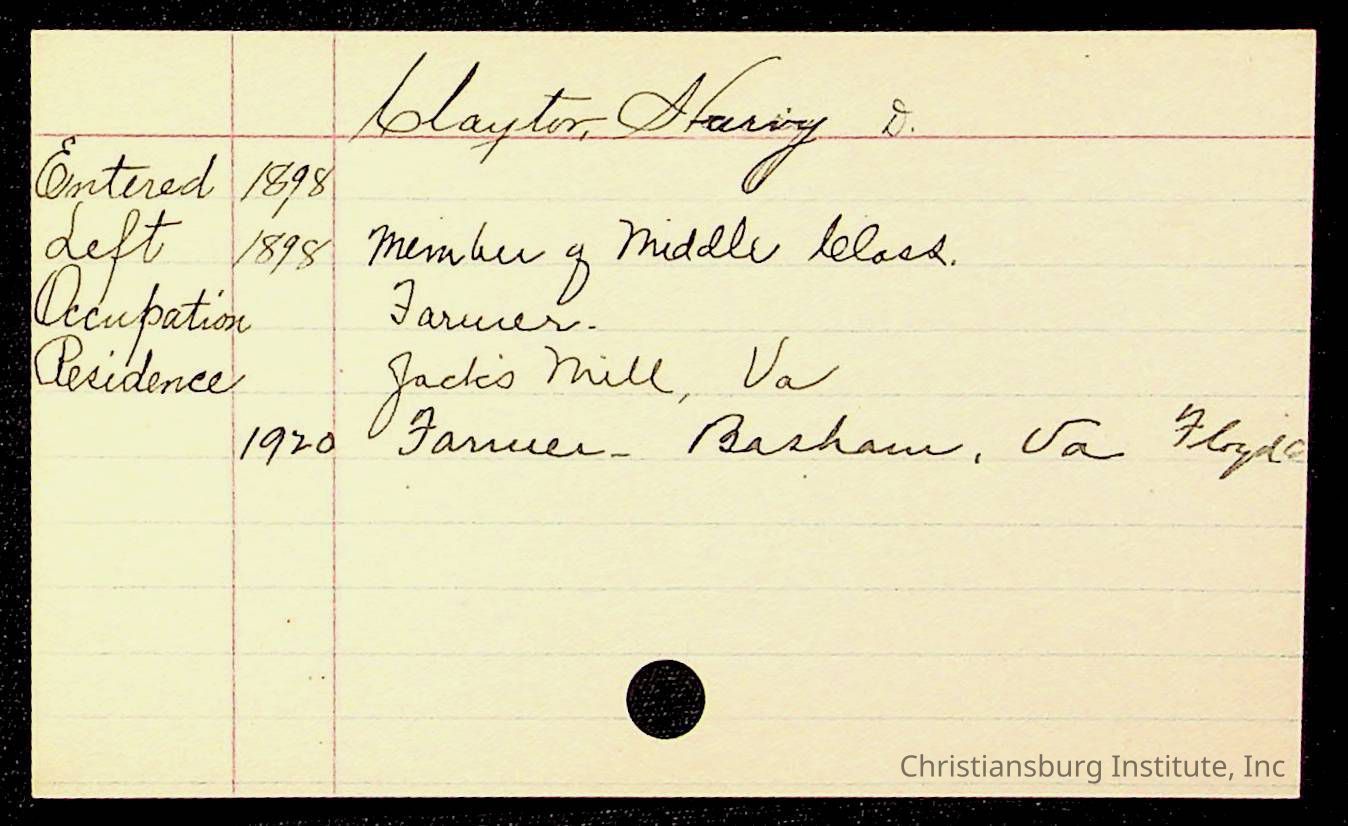 Clayton, Harvy D.
Entered 1898
Left 1898 Member of Middle Class.
Occupation Farmer.
Residence Jack's Mill, Va
1920 Farmer - Basham, Va Floyd Co
Christiansburg Institute, Inc